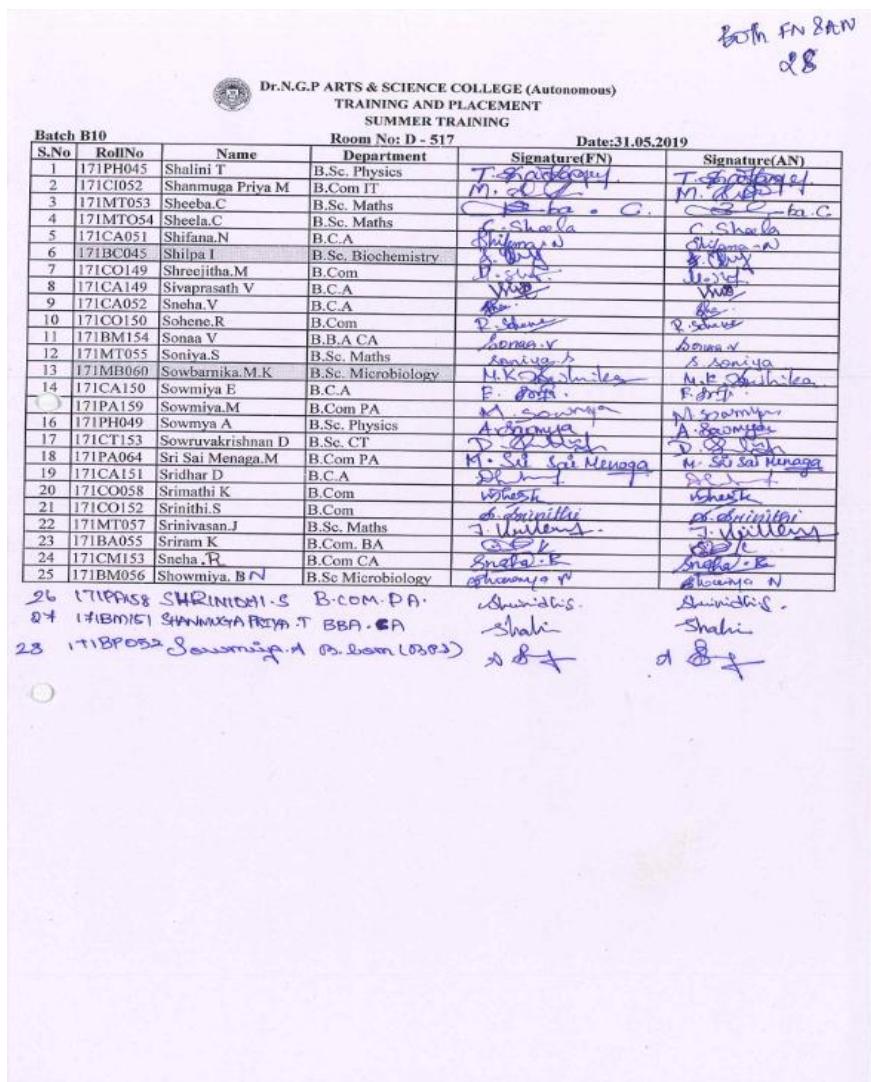 Both FN & AN
28
Dr.N.G.P ARTS & SCIENCE COLLEGE (Autonomous)
TRAINING AND PLACEMENT
SUMMER TRAINING
Batch B10 Room No: D - 517 Date:31.05.2019
S.No RollNo Name Department Signature(FN) Signature(AN)
1 171PH045 Shalini T B.Sc. Physics
2 171CI052 Shanmuga Priya M B.Com IT
3 171MT053 Sheeba.C B.Sc. Maths
4 171MTO54 Sheela.C B.Sc. Maths C. Sheela C. Sheela
5 171CA051 Shifana.N B.C.A Shifana-N Shifana-N
6 171BC045 Shilpa I B.Sc. Biochemistry
7 171CO149 Shreejitha.M B.Com
8 171CA149 Sivaprasath V B.C.A
9 171CA052 Sneha.V B.C.A
10 171CO150 Sohene.R B.Com R. Sohene R. Sohene
11 171BM154 Sonaa V B.B.A CA Sonaa.V Sonaa.V
12 171MT055 Soniya.S B.Sc. Maths Soniya S S. Soniya
13 171MB060 Sowbarnika.M.K B.Sc. Microbiology
14 171CA150 Sowmiya E B.C.A
171PA159 Sowmiya.M B.Com PA M. Sowmya M. Sowmya
16 171PH049 Sowmya A B.Sc. Physics A. Sowmya A. Sowmya
17 171CT153 Sowruvakrishnan D B.Sc. CT
18 171PA064 Sri Sai Menaga.M B.Com PA M. Sri Sai Menaga M. Sri Sai Menaga
19 171CA151 Sridhar D B.C.A
20 171CO058 Srimathi K B.Com
21 171CO152 Srinithi.S B.Com S. Srinithi S. Srinithi
22 171MT057 Srinivasan.J B.Sc. Maths
23 171BA055 Sriram K B.Com. BA
24 171CM153 Sneha.R B.Com CA Sneha.R Sneha.R
25 171BM056 Showmiya. BN B.Sc Microbiology
26 171PA158 SHRINIDHI.S B.COM.PA. Shrinidhi.S. Shrinidhi.S.
27 171BM151 SHANMUGA PRIYA .T BBA.CA Shali Shali
28 171BP052 Sowmiya.A B.Com (BPS)